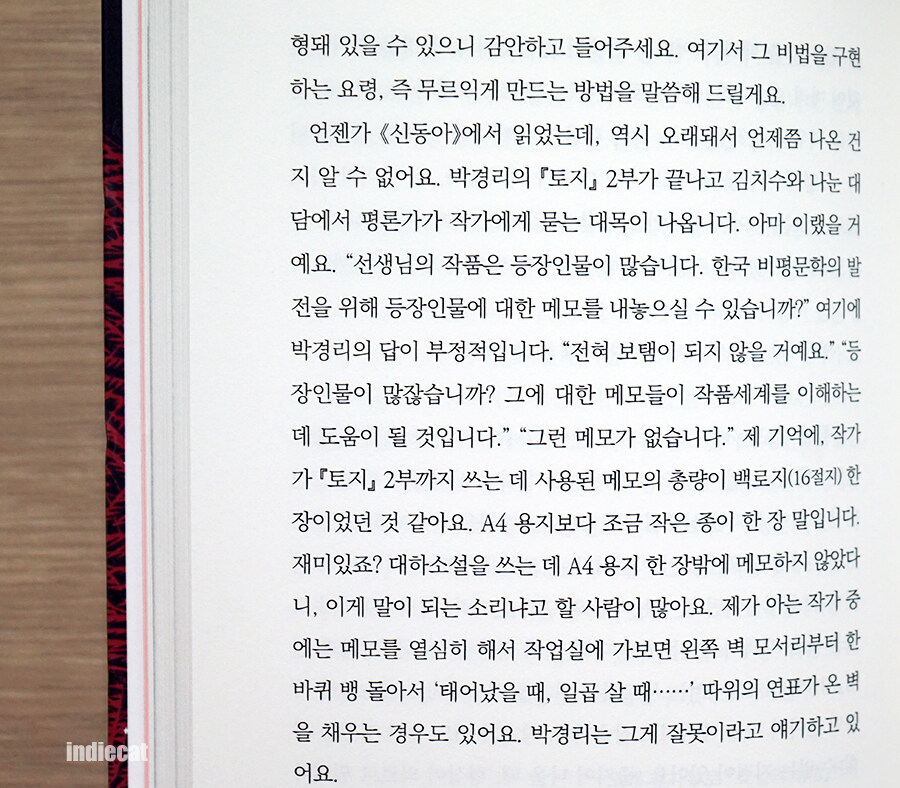 형돼 있을 수 있으니 감안하고 들어주세요. 여기서 그 비법을 구현
하는 요령, 즉 무르익게 만드는 방법을 말씀해 드릴게요.
언젠가 《신동아》에서 읽었는데, 역시 오래돼서 언제쯤 나온 건
지 알 수 없어요. 박경리의 『토지』 2부가 끝나고 김치수와 나눈 대
담에서 평론가가 작가에게 묻는 대목이 나옵니다. 아마 이랬을 거
예요. “선생님의 작품은 등장인물이 많습니다. 한국 비평문학의 발
전을 위해 등장인물에 대한 메모를 내놓으실 수 있습니까?” 여기에
박경리의 답이 부정적입니다. “전혀 보탬이 되지 않을 거예요.” “등
장인물이 많잖습니까? 그에 대한 메모들이 작품세계를 이해하는
데 도움이 될 것입니다.” “그런 메모가 없습니다.” 제 기억에, 작가
가 『토지』 2부까지 쓰는 데 사용된 메모의 총량이 백로지(16절지) 한
장이었던 것 같아요. A4 용지보다 조금 작은 종이 한 장 말입니다.
재미있죠? 대하소설을 쓰는 데 A4 용지 한 장밖에 메모하지 않았다
니, 이게 말이 되는 소리냐고 할 사람이 많아요. 제가 아는 작가 중
에는 메모를 열심히 해서 작업실에 가보면 왼쪽 벽 모서리부터 한
바퀴 뱅 돌아서 ‘태어났을 때, 일곱 살 때……’ 따위의 연표가 온 벽
을 채우는 경우도 있어요. 박경리는 그게 잘못이라고 얘기하고 있
어요.
indiecat